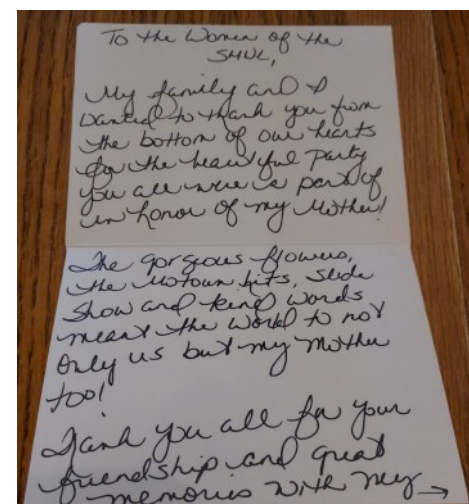 To the Women of the
SHUL,
My family and I
wanted to thank you from
the bottom of our hearts
for the beautiful party
you all were a part of
in honor of my Mother!
The gorgeous flowers,
the Motown hits, slide
show and kind words
meant the world to not
only us but my mother
too!
Thank you all for your
friendship and great
memories with my →